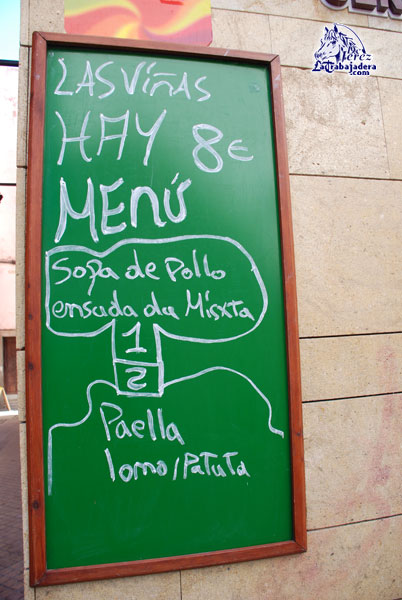 Jerez
LaTrabajadera
.com
LAS Viñas
HAY 8€
MENÚ
Sopa de Pollo
ensada da Misxta
1
2
Paella
lomo/Patuta